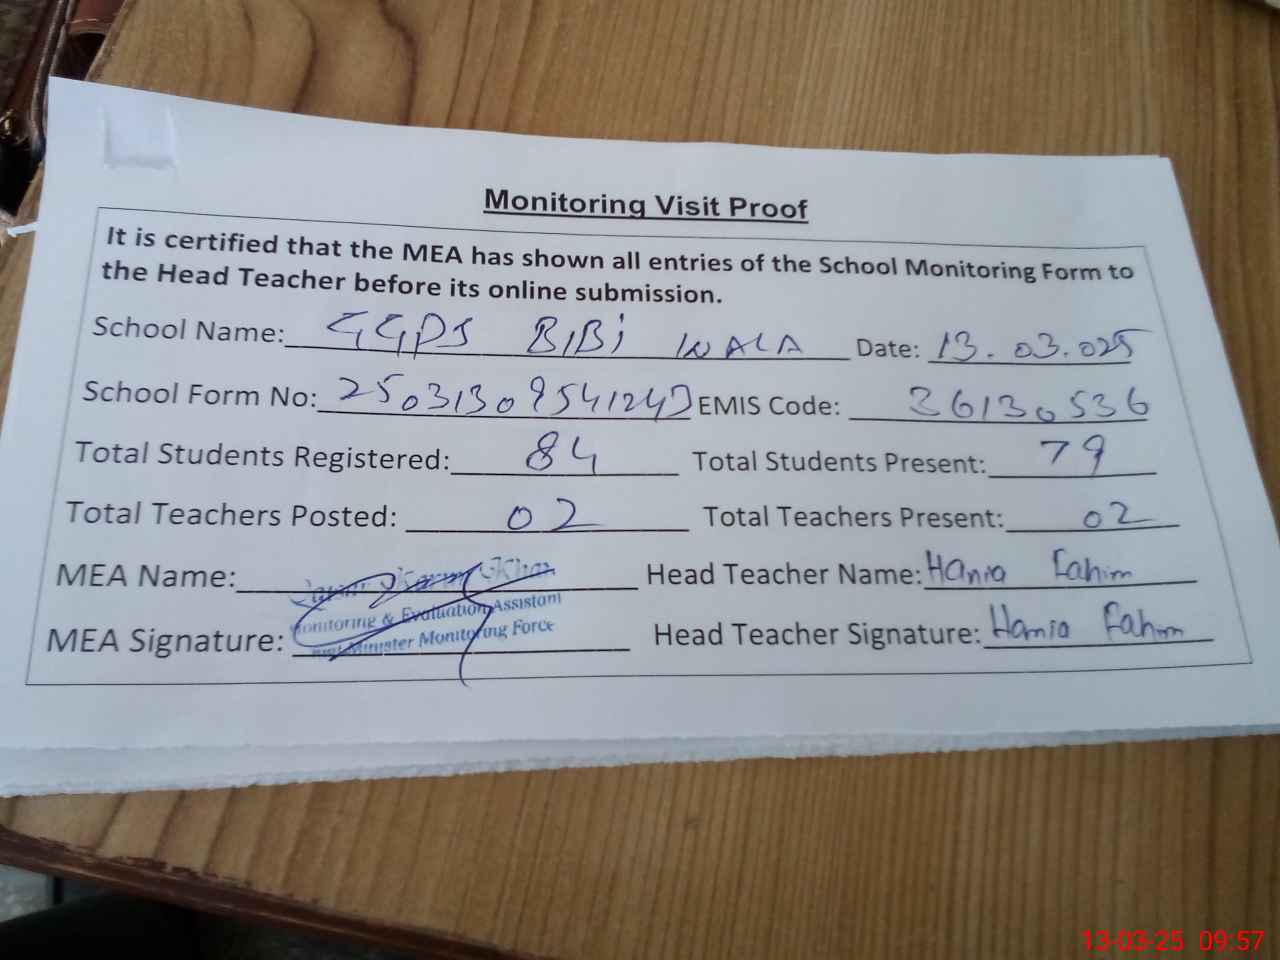 Monitoring Visit Proof
It is certified that the MEA has shown all entries of the School Monitoring Form to
the Head Teacher before its online submission.
School Name: GGPS BIBI WALA Date: 13.03.025
School Form No: EMIS Code: 36130536
Total Students Registered: 84 Total Students Present: 79
Total Teachers Posted: 02 Total Teachers Present: 02
MEA Name: Khan Head Teacher Name: Hania Fahim
Monitoring & Evaluation Assistant
MEA Signature: Minister Monitoring Force Head Teacher Signature: Hania Fahim
13-03-25 09:57